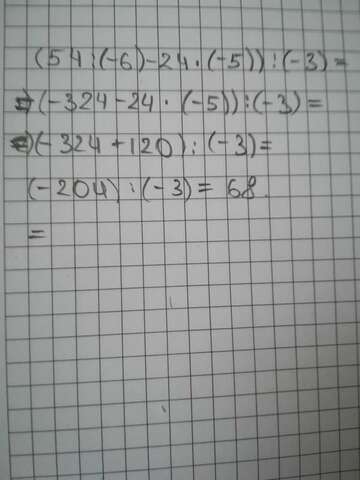 (54:(-6)-24·(-5)):(-3)=
=)(-324-24·(-5)):(-3)=
=)(-324+120):(-3)=
(-204):(-3)=68.
=